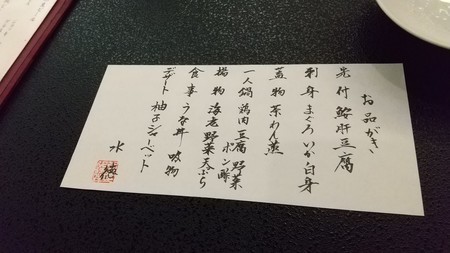 お品がき
先付 鮟肝豆腐
刺身 まぐろ いか 白身
蒸物 茶わん蒸
一人鍋 鶏肉 豆腐 野菜
ポン酢
揚物 海老 野菜天ぷら
食事 うな丼 吸物
デザート 柚子シャーベット
水
徳